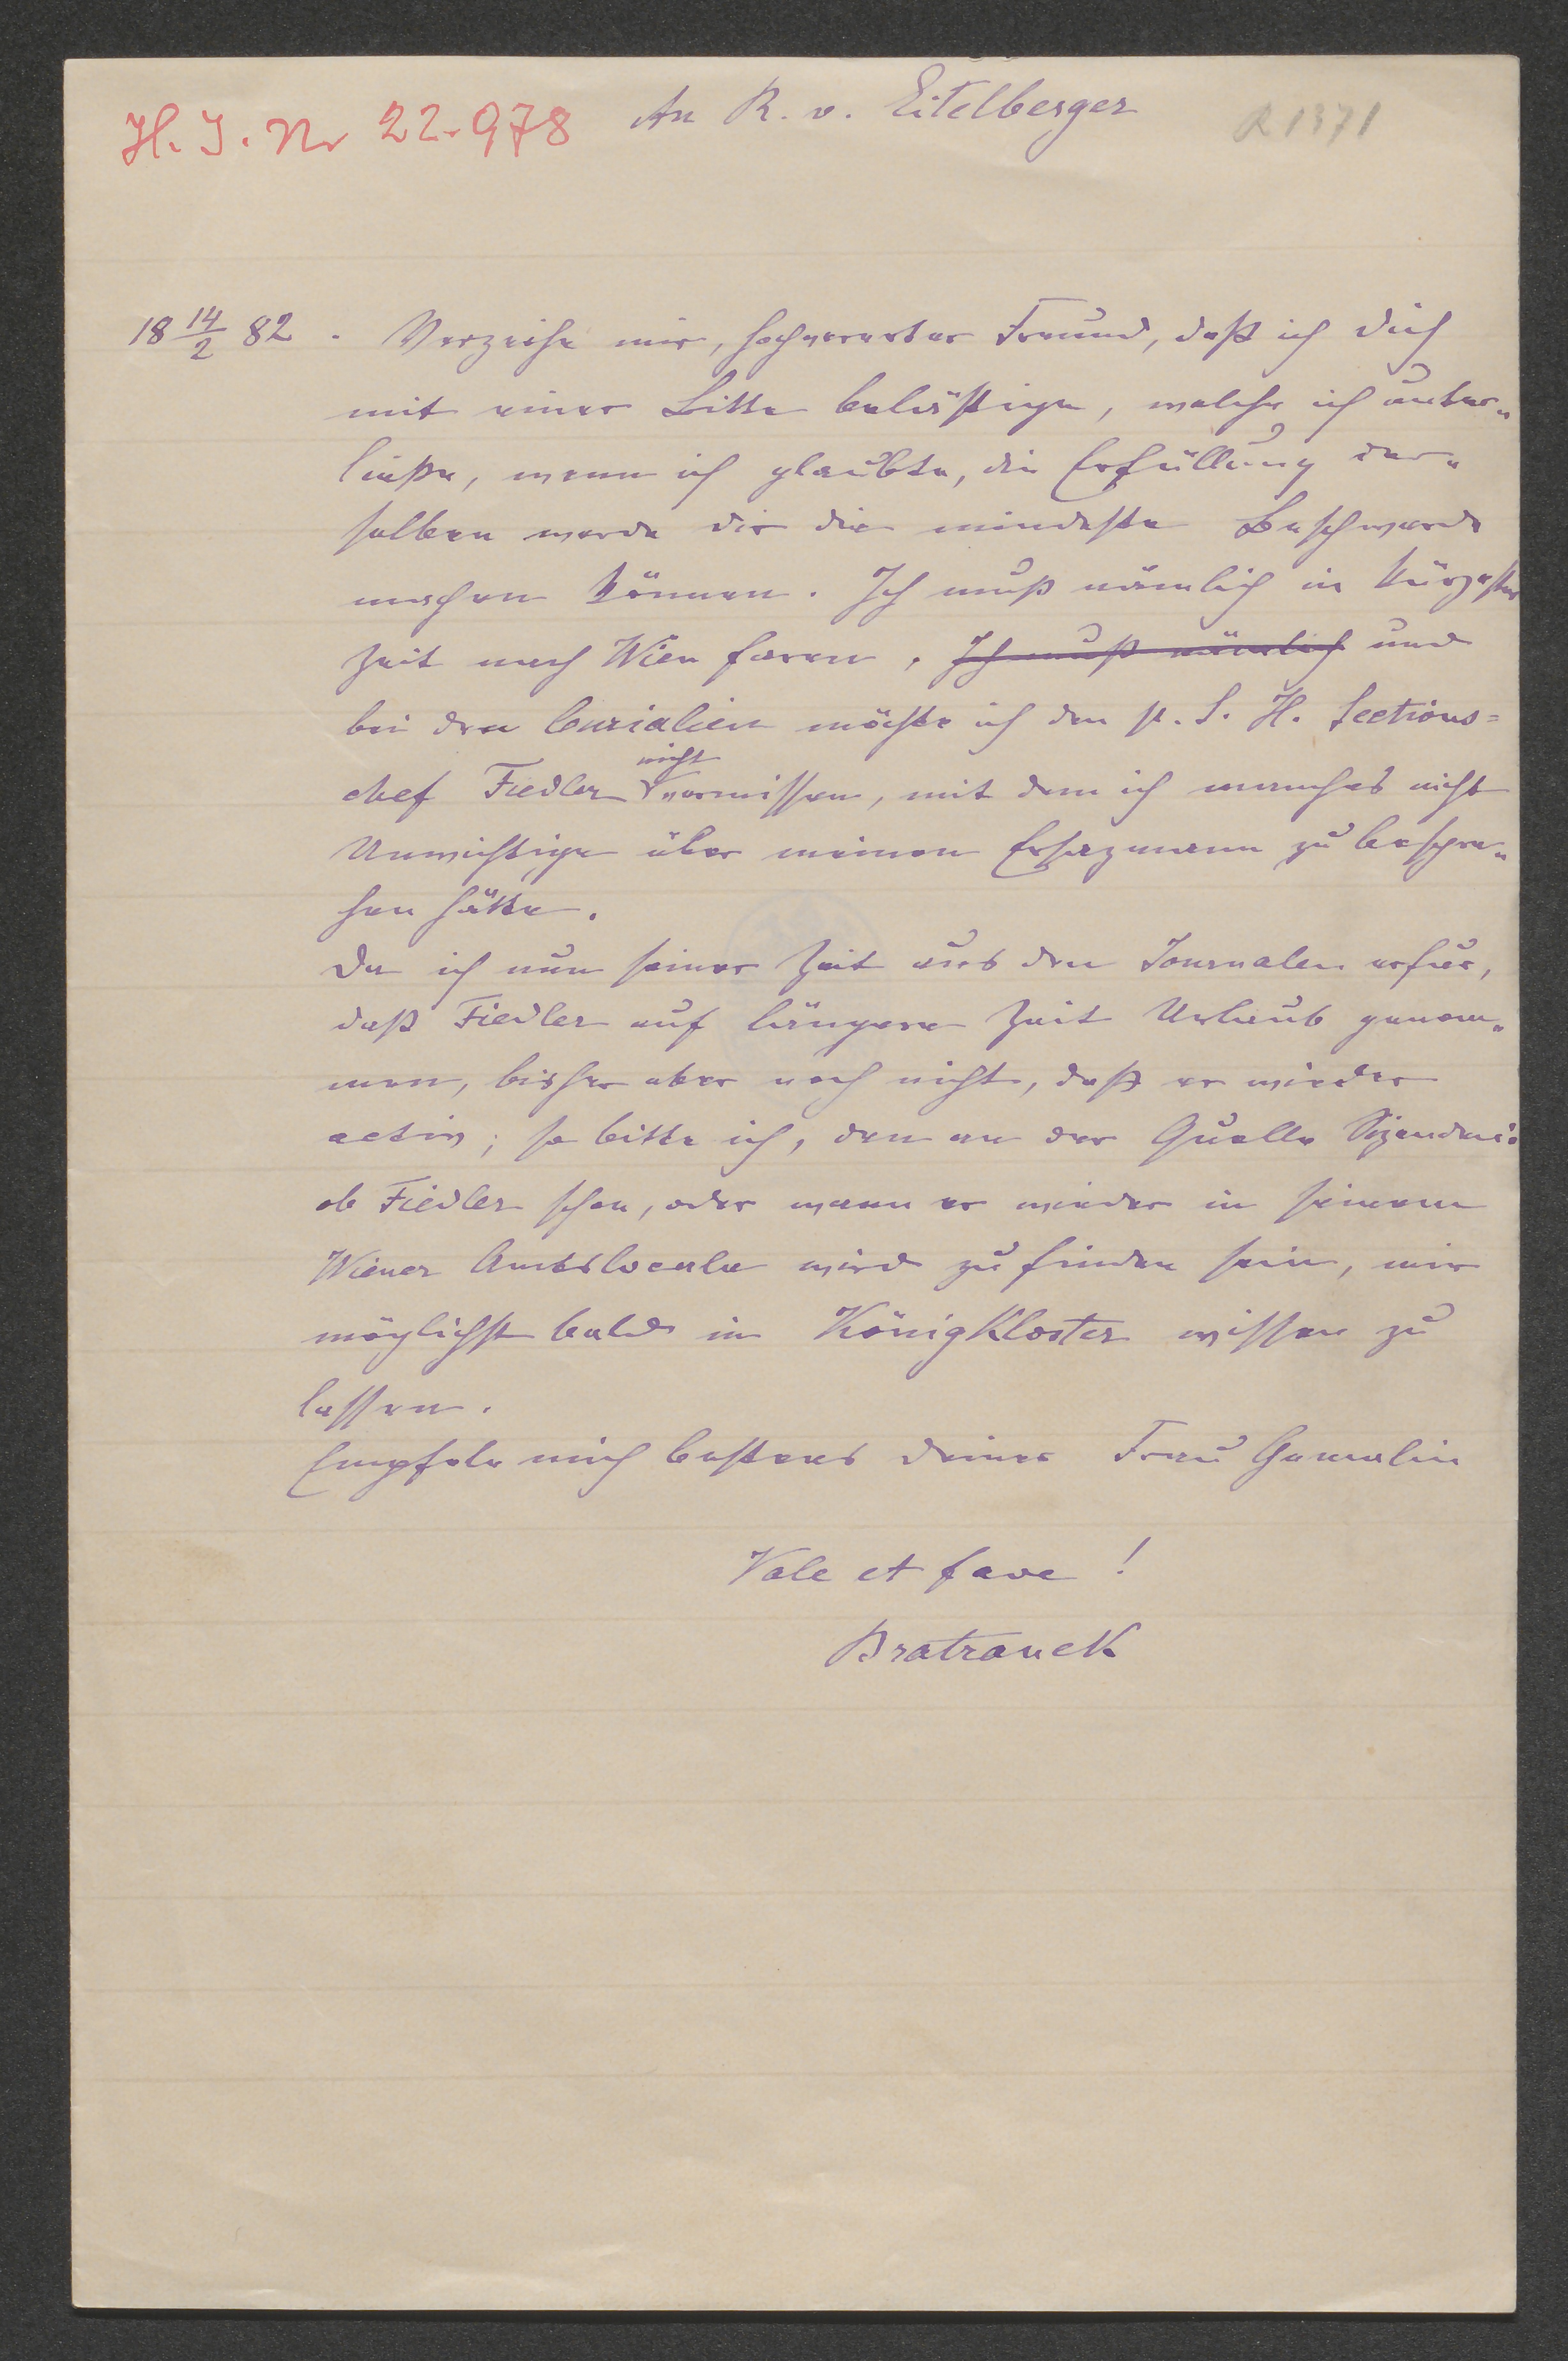 H. I. Nr 22.978 An R. v. Eitelberger R 1371
18 14/2 82. Verzeihe mir, hochvererter Freund, daß ich dich
mit einer Bitte belästige, welche ich unter„
ließe, wenn ich glaubte, die Erfüllung der„
selben werde dir die mindeste Beschwerde
machen können. Ich muß nämlich in kürzester
Zeit nach Wien faren, Ich muß nämlich und
bei den Curialien möchte ich den H. Sections=
chef Fiedler nicht vermissen, mit dem ich manches nicht
Unwichtige über meinen Ersazmann zu bespre„
chen hätte.
Da ich nun seiner Zeit aus den Journalen erfur,
daß Fiedler auf längere Zeit Urlaub genom„
men, bisher aber noch nicht, daß er wieder
activ; so bitte ich, den an der Quelle Sizenden:
ob Fiedler schon, oder wann er wieder in seinem
Wiener Amtslocale wird zu finden sein, mir
möglichst bald in Königkloster wissen zu
lassen.
Empfele mich bestens deiner Frau Gemalin
Vale et fave!
Bratranek